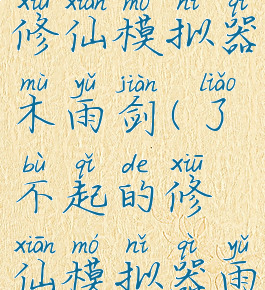 xiū xiān mó nǐ qì
修仙模拟器
mù yǔ jiàn liǎo
木雨剑(了
bù qǐ de xiū
不起的修
xiān mó nǐ qì yǔ
仙模拟器雨